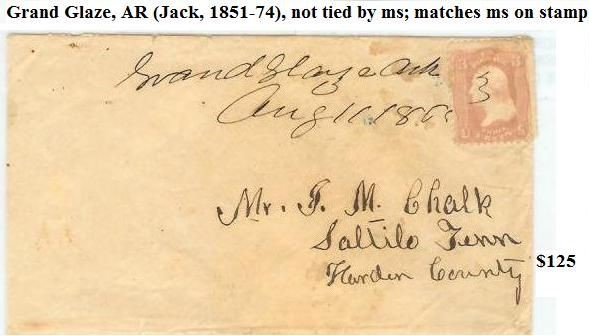 Grand Glaze, AR (Jack, 1851-74), not tied by ms; matches ms on stamp
Grand Glaze Ark 3
Aug 11 186
Mr. T. M. Chalk
Saltilo Tenn
Harden County
$125